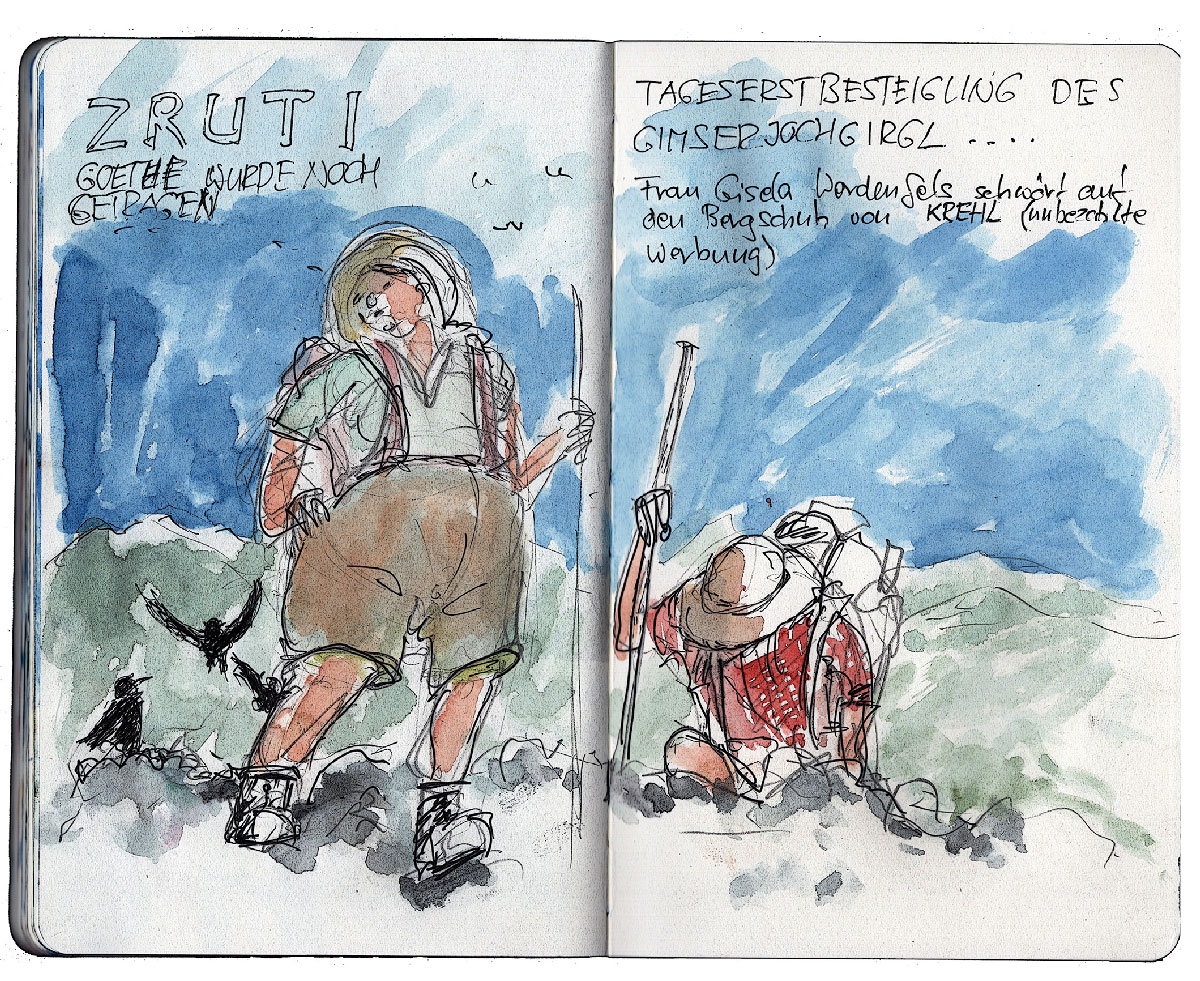 ZRUTI
GOETHE WURDE NOCH
GETRAGEN
TAGESERSTBESTEIGUNG DES
GIMSERJOCHGIRGL ....
Frau Gisela Werdenfels schwört auf
den Bergschuh von KREHL (unbezahlte
Werbung)